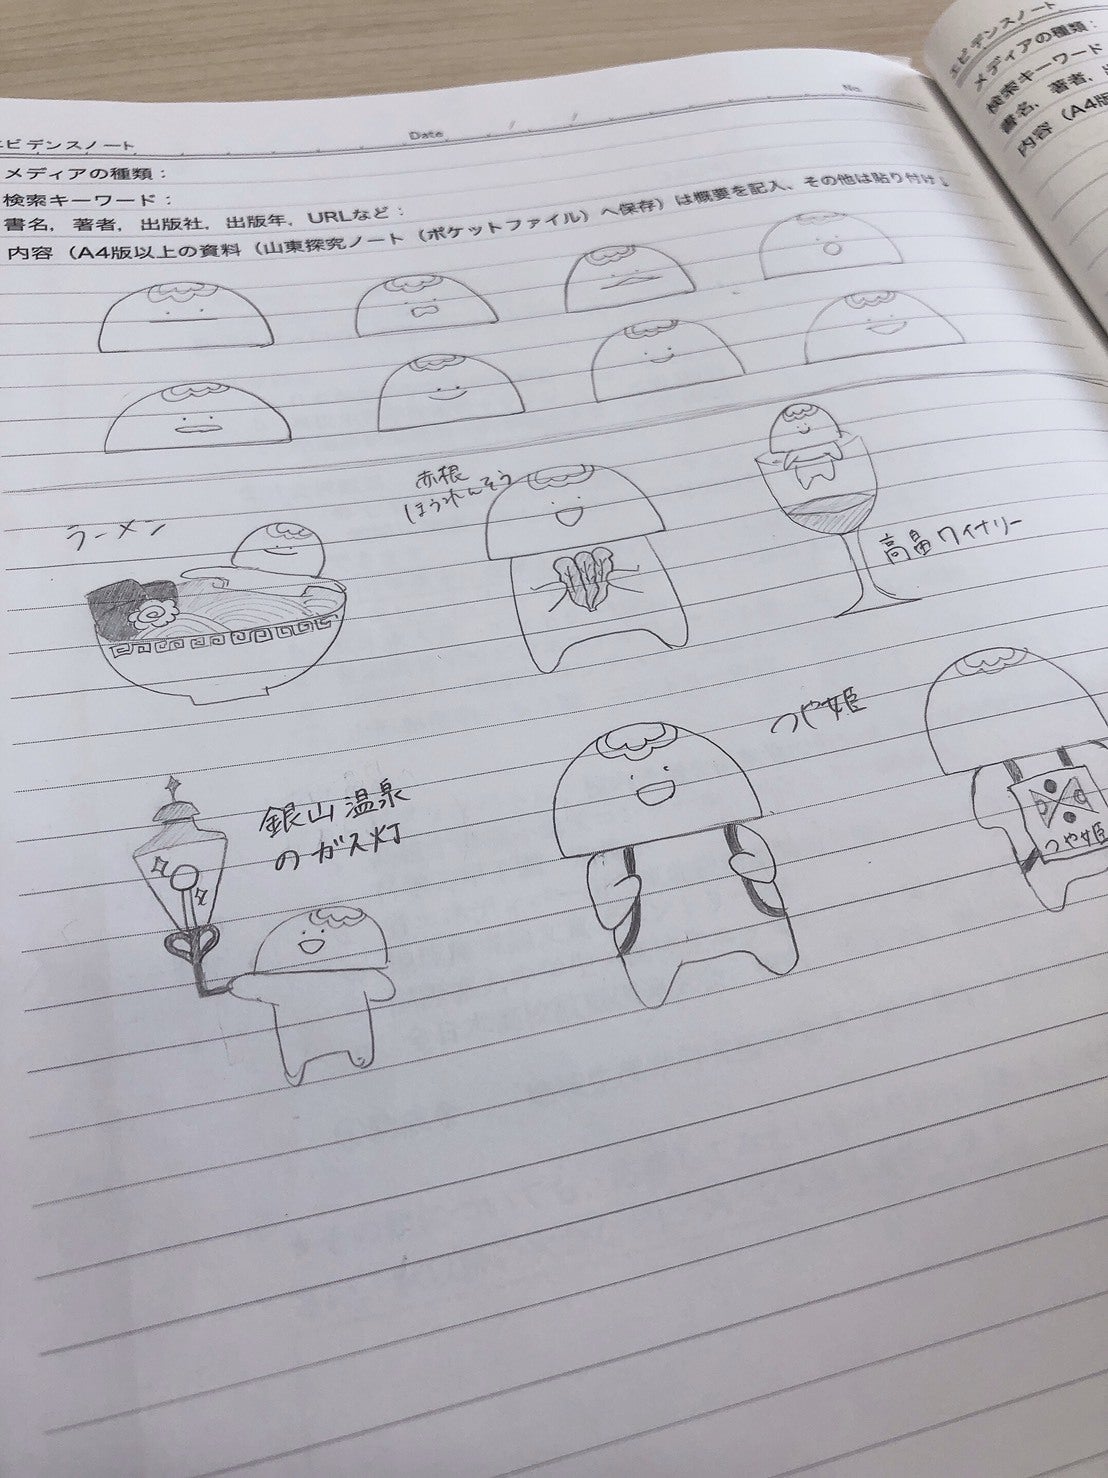 エビデンスノート
Date
No.
メディアの種類：
検索キーワード：
書名，著者，出版社，出版年，URLなど：
内容（A4版以上の資料（山東探究ノート（ポケットファイル）へ保存）は概要を記入、その他は貼り付け）
ラーメン
赤根
ほうれんそう
高畠ワイナリー
銀山温泉
のガス灯
つや姫
つや姫
エビデンスノート
メディアの種類：
検索キーワード
書名，著者，出
内容（A4版